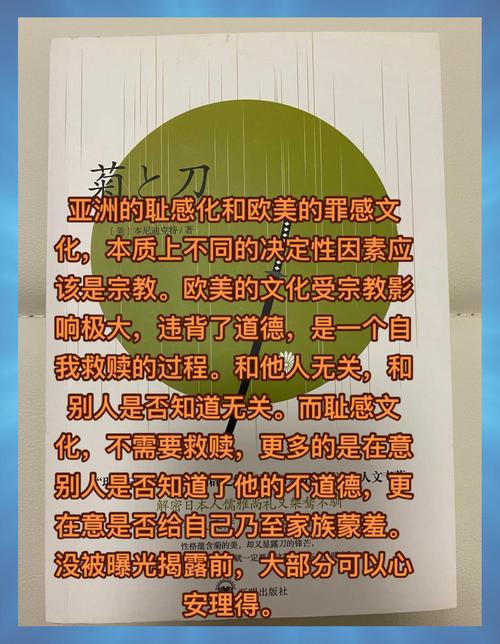 菊と刀
亚洲的耻感化和欧美的罪感文
[美] 本尼迪克特/著
化，本质上不同的决定性因素应
该是宗教。欧美的文化受宗教影
响极大，违背了道德，是一个自
我救赎的过程。和他人无关，和
别人是否知道无关。而耻感文
化，不需要救赎，更多的是在意
别人是否知道了他的不道德，更
解密日本人儒雅尚礼又桀骜不驯
在意是否给自己乃至家族蒙羞。
性格蕴含菊的美，却又显露刀的锋芒，
没被曝光揭露前，大部分可以心
安理得。
出版社